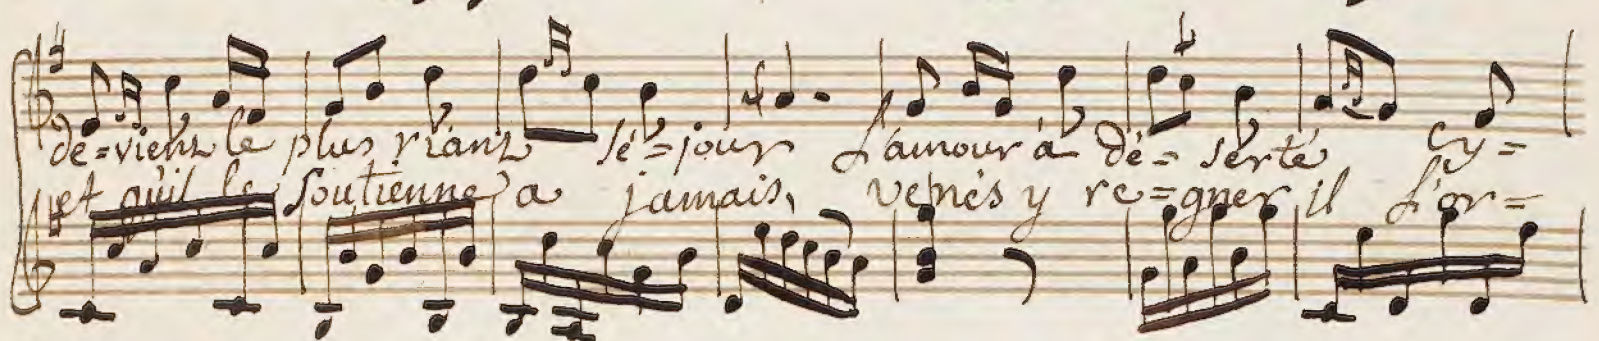 de=vient le plus riant sé=jour L'amour à dé=serté Cy=
et qu'il le soutienne a jamais, venés y re=gner il l'or=